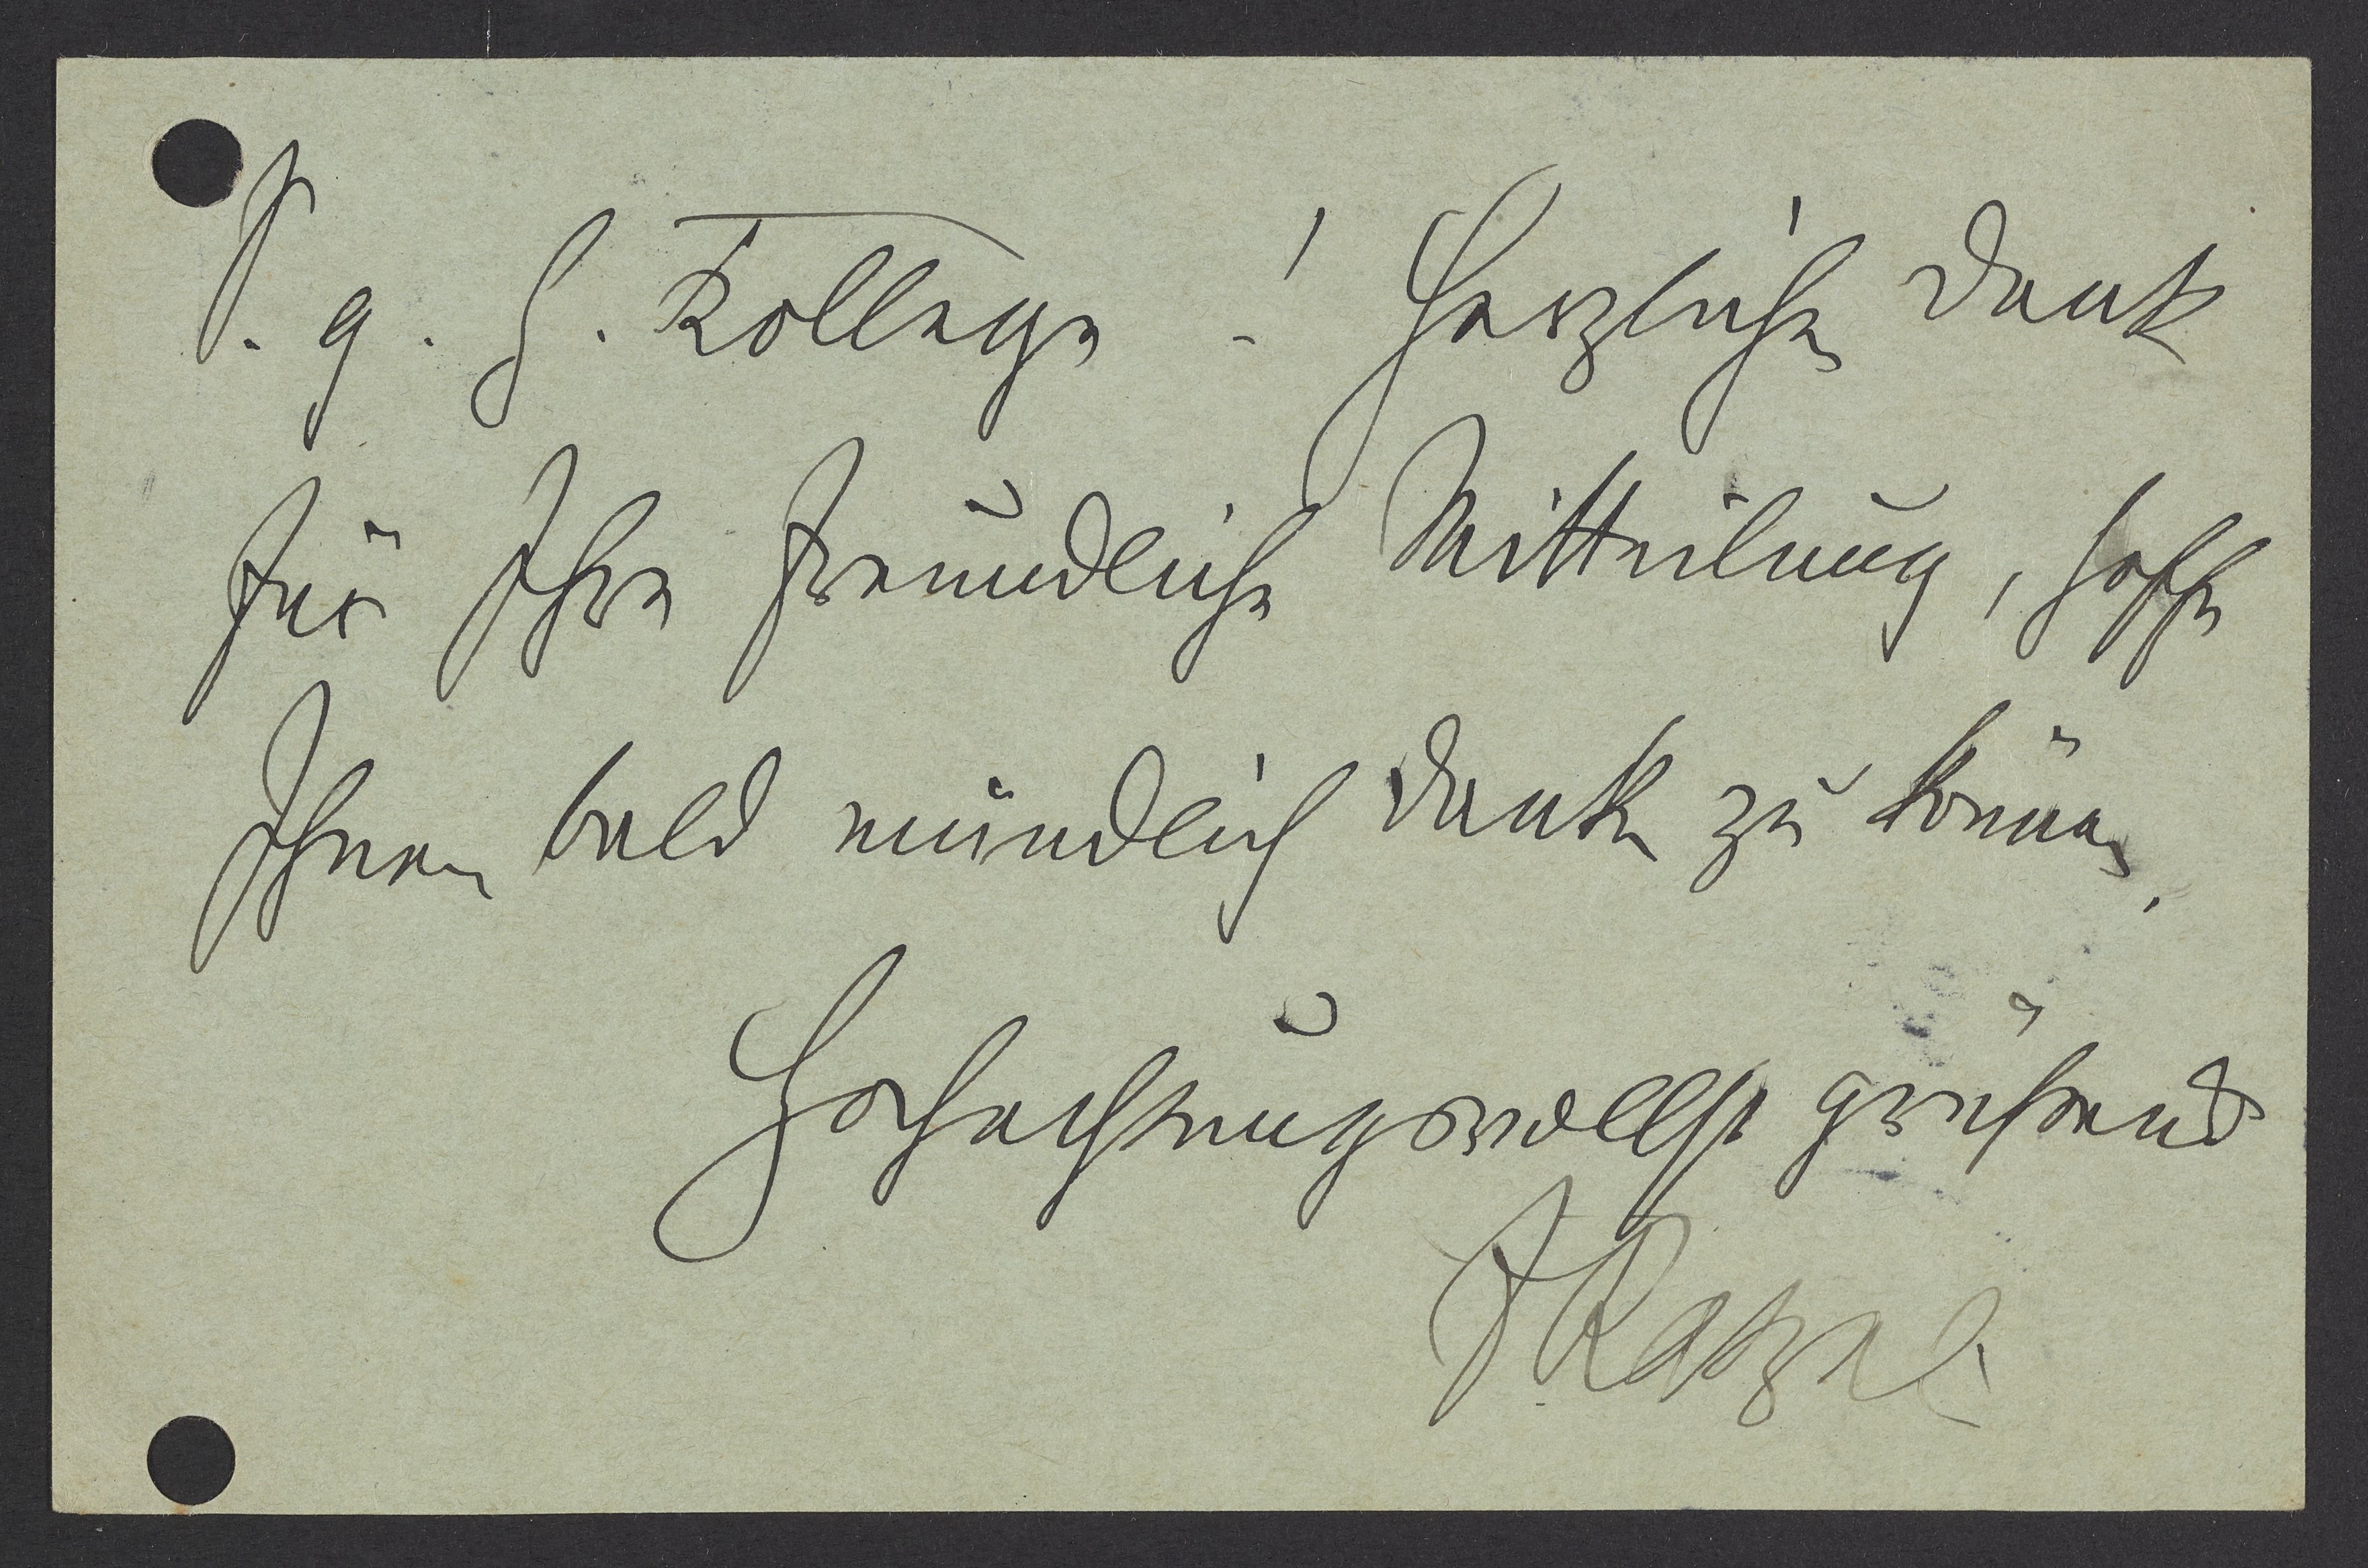 S. g. H. Kollege! Herzlichen Dank
für Ihre freundliche Mitteilung, hoffe
Ihnen bald mündlich danken zu können.
Hochachtungsvollst grüßend